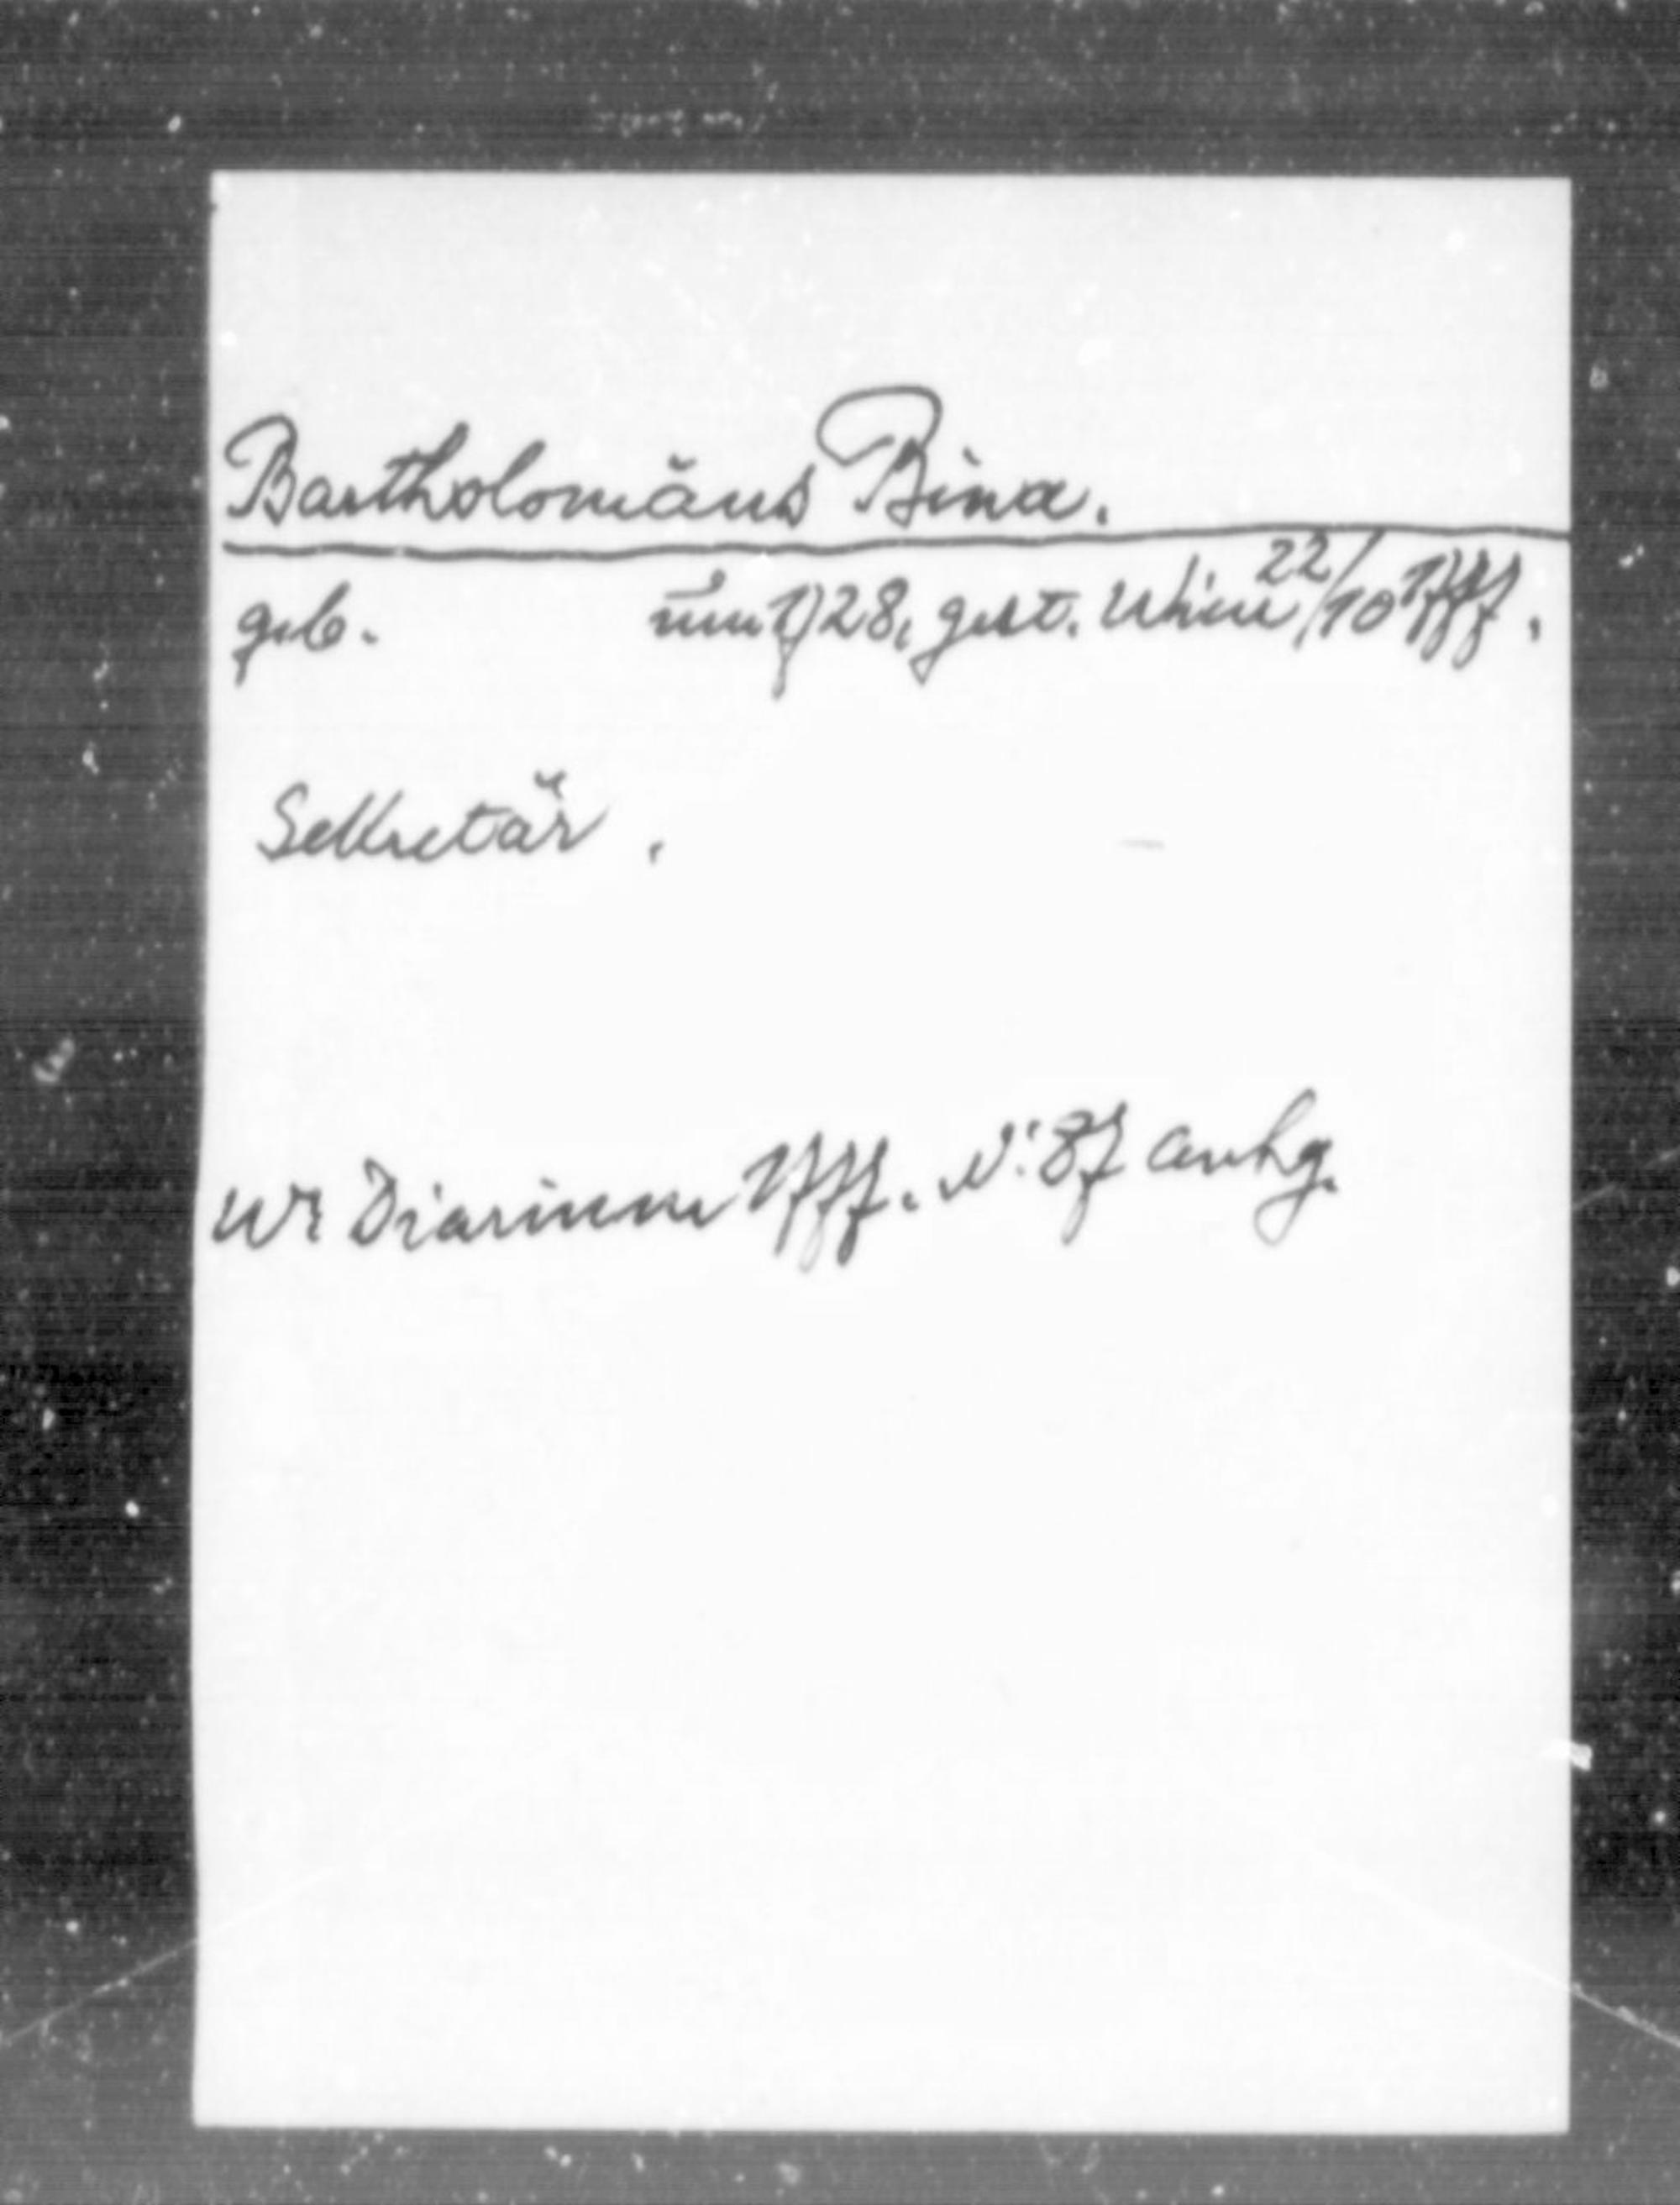 Bartholomäus Bina.
geb. um 1728, gest. Wien 22/10 1777.
Sekretär.
Wr Diarium 1777. N: 87 anhg.